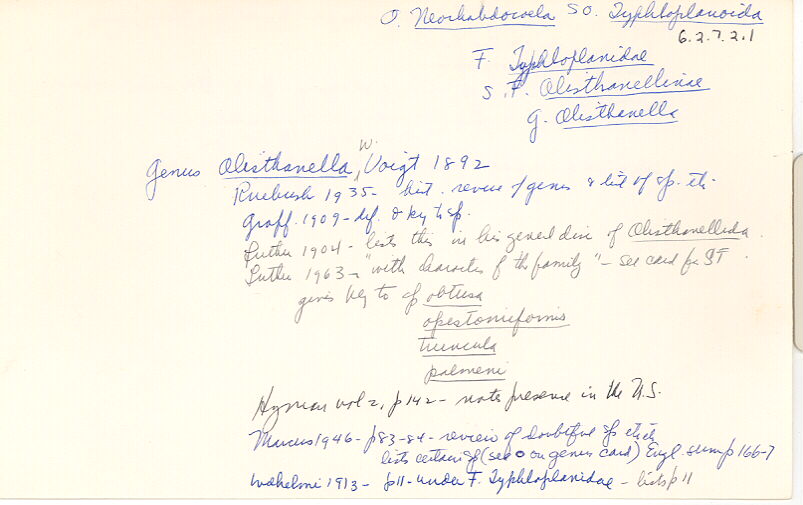 O. Neorhabdocoela SO. Typhloplanoida
6.2.7.2.1
F. Typhloplanidae
S.F. Olisthanellinae
G. Olisthanella
Genus Olisthanella, W. Voigt 1892
Ruebush 1935 - hist. review of genus & list of sp. etc.
Graff. 1909 - def. & key to sp.
Luther 1904 - lists this in his general disc of Olisthanellida.
Luther 1963 - "with characters of the family" - see card for ST
gives key to sp obtusa
opestomiformis
truncula
palmeni
Hyman vol 2, p 142 - notes presence in the U.S.
Marcus 1946 - p 83-84 - review of doubtful sp which
lists certain sp (see o on genus card) Engl. sum p 166-7
Wilhelmi 1913 - p 11 - under F. Typhloplanidae - lists p 11